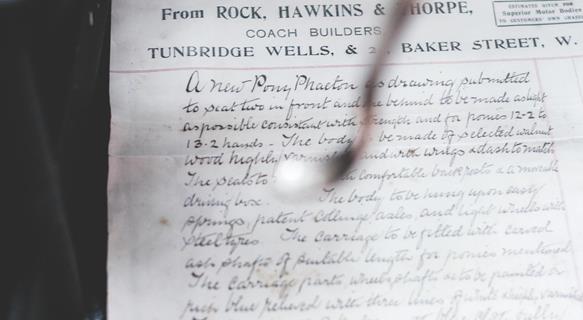 From ROCK, HAWKINS & THORPE,
COACH BUILDERS
TUNBRIDGE WELLS, & BAKER STREET, W.
ESTIMATES GIVEN FOR
Superior Motor Bodies
TO CUSTOMERS' OWN
A new Pony Phaeton as drawing submitted
to seat two in front and behind to be made as light
as possible consistent with strength and for ponies 12-2 to
13-2 hands - The body be made of selected walnut
wood highly and with wings & dash to match
The seats to comfortable backrests & a movable
driving box. The body to be hung upon easy
springs, patent Collinge axles, and light wheels with
steel tyres. The carriage to be fitted with carved
ash shafts of suitable length for ponies mentioned
The carriage parts, wheels shafts &c to be painted a
rich blue relieved with three lines of white highly